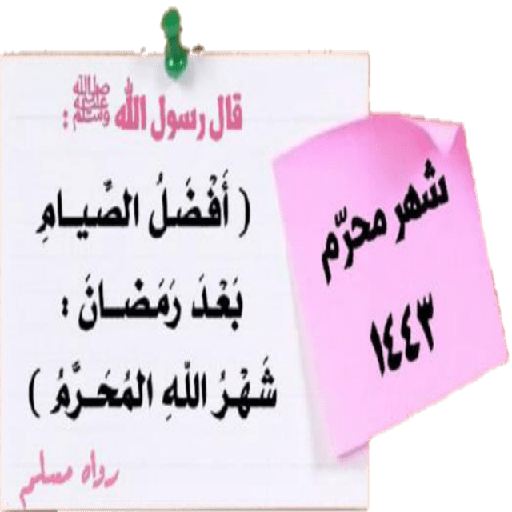 قال رسول الله ﷺ :
( أَفْضَلُ الصِّيـامِ
بَعْـدَ رَمَضـانَ :
شَهْـرُ اللّهِ المُحَـرَّمُ )
رواه مسلم
شهر محرّم
١٤٤٣